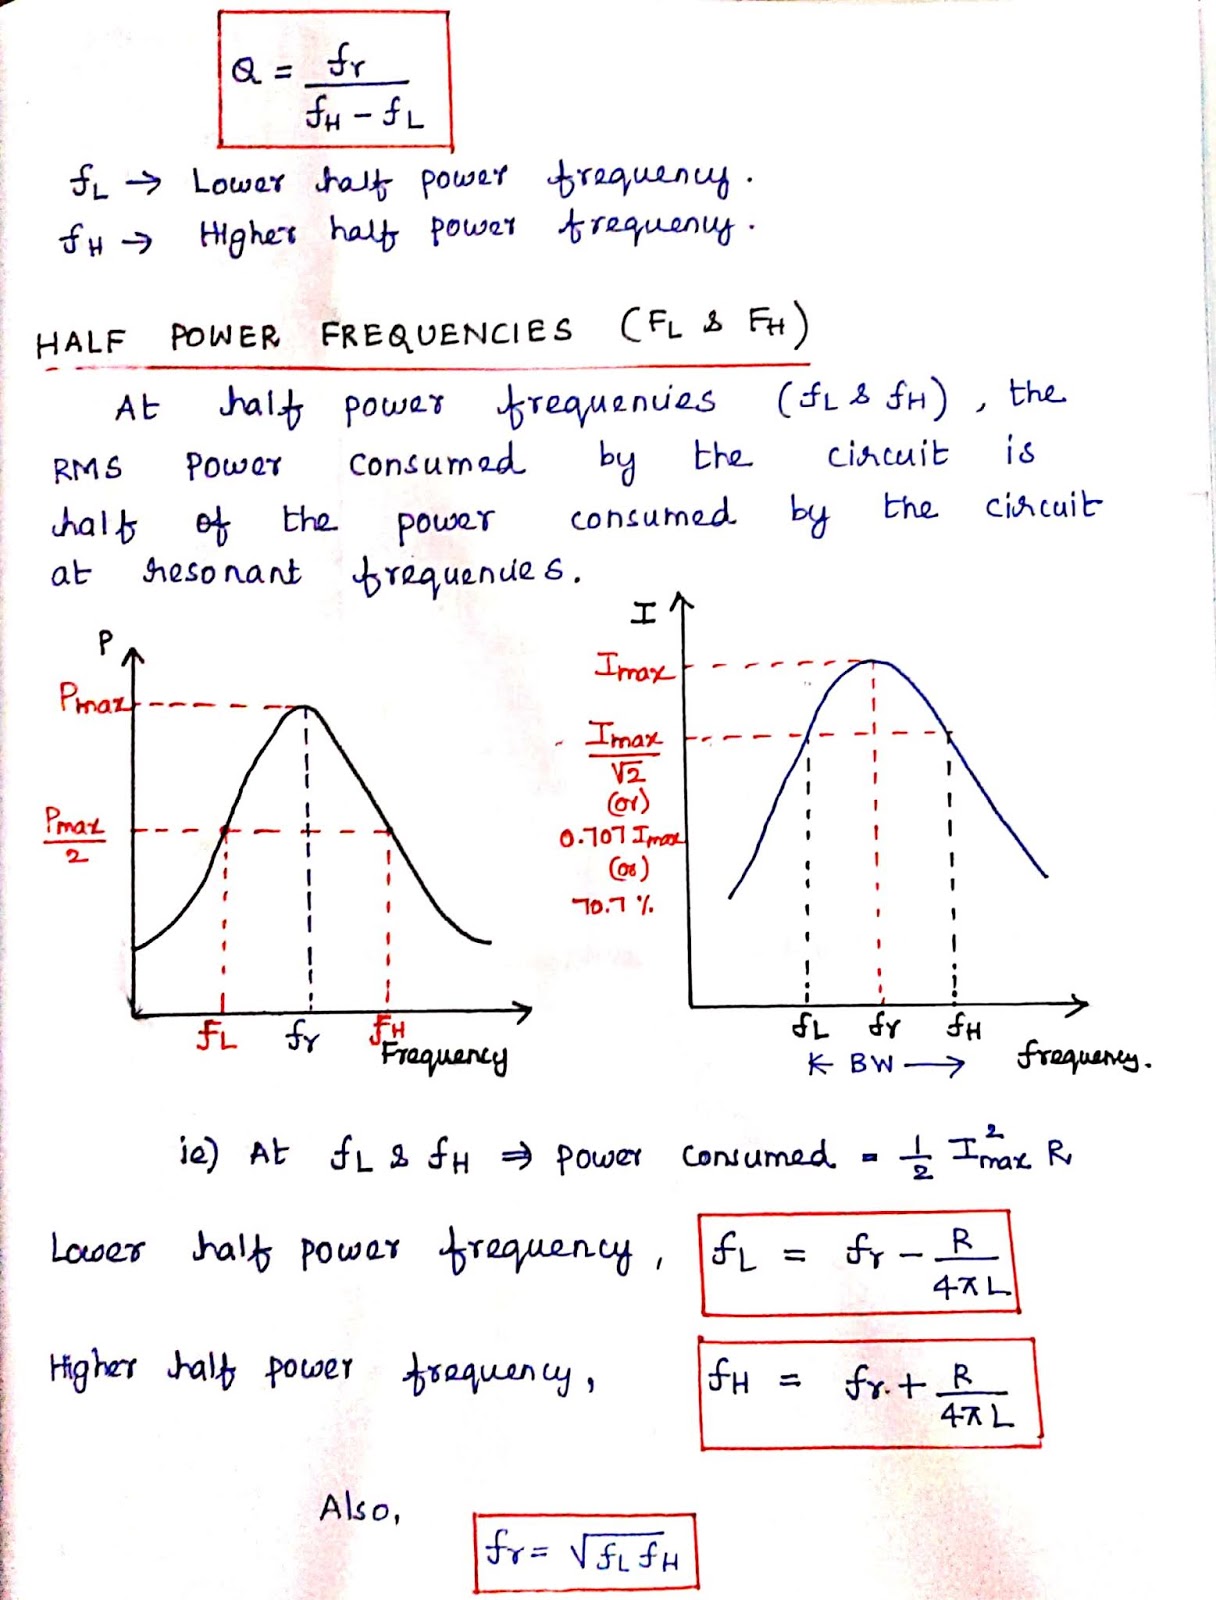 Q = fr / (fH - fL)
fL → Lower half power frequency.
fH → Higher half power frequency.
HALF POWER FREQUENCIES (FL & FH)
At half power frequencies (fL & fH), the
RMS Power consumed by the circuit is
half of the power consumed by the circuit
at resonant frequencies.
P
Pmax
Pmax/2
fL fr fH
Frequency
I
Imax
Imax/√2
(or)
0.707 Imax
(or)
70.7 %
fL fr fH
K BW → frequency.
ie) At fL & fH ⇒ power consumed = 1/2 I²max R
Lower half power frequency, fL = fr - R/4πL
Higher half power frequency, fH = fr + R/4πL
Also,
fr = √fL fH